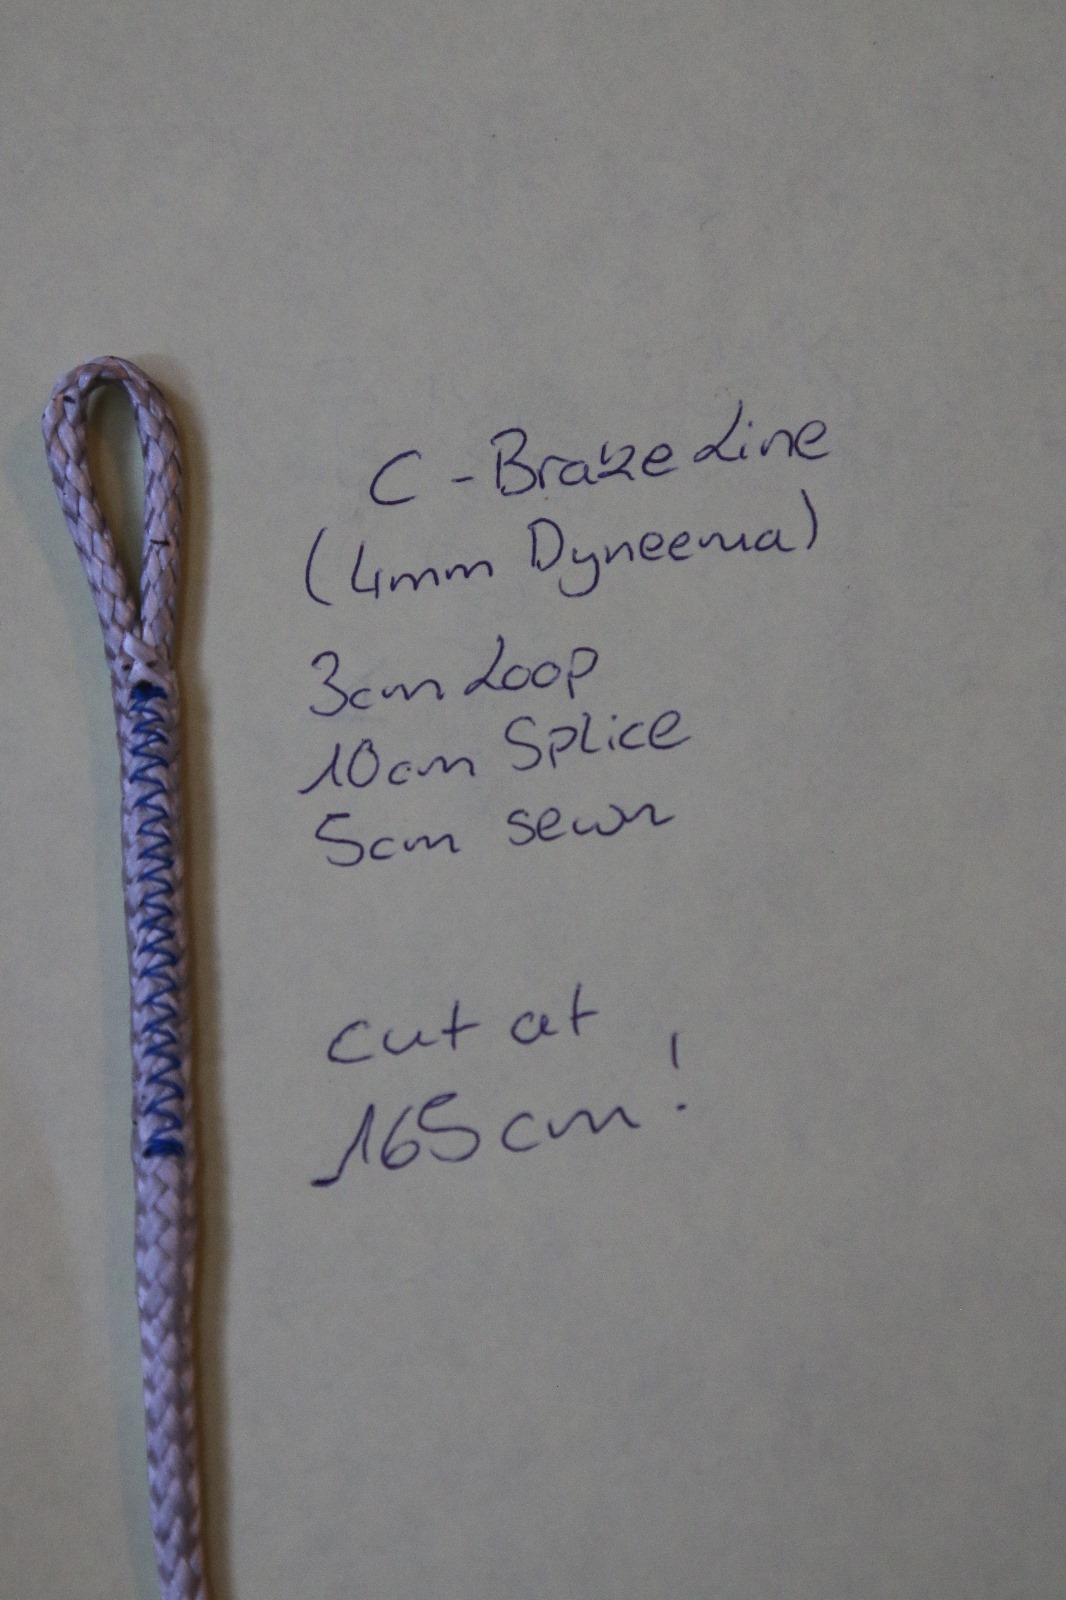 C - Brake Line
(4mm Dyneema)
3cm Loop
10cm Splice
5cm sewn
cut at
165cm!